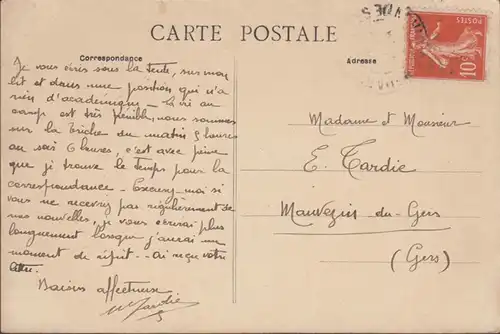 CARTE POSTALE
Correspondance
Adresse
POSTES
10c
Je vous écris sous la Tente, sur mon
lit et dans une position qui n'a
rien d'academique - La vie au
camp est très pénible, nous sommes
sur la brèche du matin 3 heures
au soir 6 heures, c'est avec peine
que je trouve le Temps pour la
correspondance - Excusez-moi si
vous ne recevez pas régulièrement de
mes nouvelles, je vous écrirai plus
longuement lorsque j'aurai un
moment de répit - ai reçu votre
Baisers affectueux
Tardie
Madame et Monsieur
E. Tardie
Mauvezin-du-Gers
(Gers)